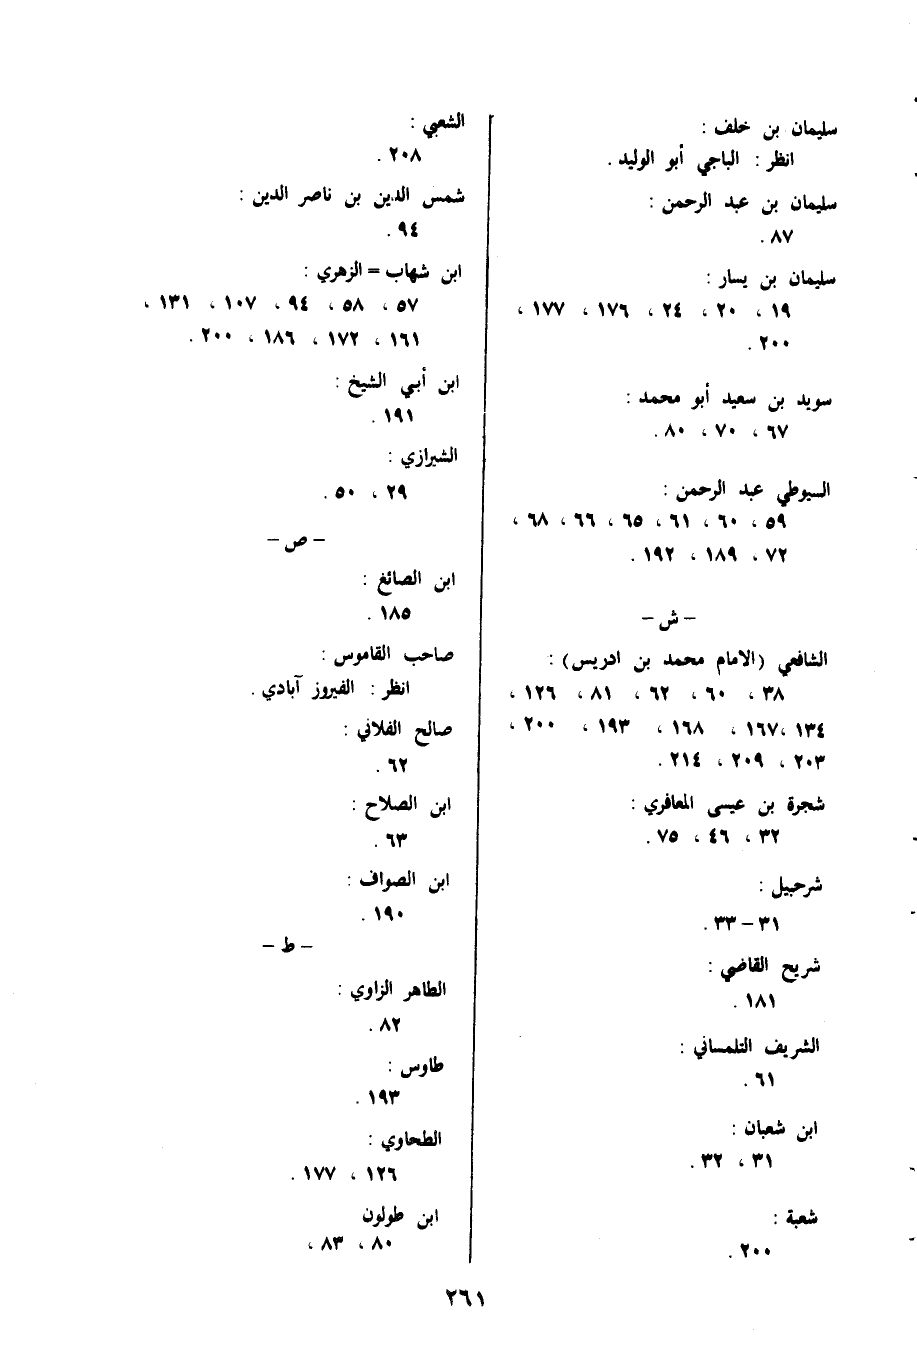 سليمان بن خلف :
انظر : الباجي أبو الوليد .
سليمان بن عبد الرحمن :
٨٧ .
سليمان بن يسار :
١٩ ، ٢٠ ، ٢٤ ، ١٧٦ ، ١٧٧ ،
٢٠٠ .
سويد بن سعيد أبو محمد :
٦٧ ، ٧٠ ، ٨٠ .
السيوطي عبد الرحمن :
٥٩ ، ٦٠ ، ٦١ ، ٦٥ ، ٦٦ ، ٦٨ ،
٧٢ ، ١٨٩ ، ١٩٢ .
– ش –
الشافعي (الامام محمد بن ادريس) :
٣٨ ، ٦٠ ، ٦٢ ، ٨١ ، ١٢٦ ،
١٣٤ ،١٦٧ ، ١٦٨ ، ١٩٣ ، ٢٠٠ ،
٢٠٣ ، ٢٠٩ ، ٢١٤ .
شجرة بن عيسى المعافري :
٣٢ ، ٤٦ ، ٧٥ .
شرحبيل :
٣١ – ٣٣ .
شريح القاضي :
١٨١ .
الشريف التلمساني :
٦١ .
ابن شعبان :
٣١ ، ٣٢ .
شعبة :
٢٠٠ .
الشعبي :
٢٠٨ .
شمس الدين بن ناصر الدين :
٩٤ .
ابن شهاب = الزهري :
٥٧ ، ٥٨ ، ٩٤ ، ١٠٧ ، ١٣١ ،
١٦١ ، ١٧٢ ، ١٨٦ ، ٢٠٠ .
ابن أبي الشيخ :
١٩١ .
الشيرازي :
٢٩ ، ٥٠ .
– ص –
ابن الصائغ :
١٨٥ .
صاحب القاموس :
انظر : الفيروز آبادي .
صالح الفلاني :
٦٢ .
ابن الصلاح :
٦٣ .
ابن الصواف :
١٩٠ .
– ط –
الطاهر الزاوي :
٨٢ .
طاوس :
١٩٣ .
الطحاوي :
١٢٦ ، ١٧٧ .
ابن طولون
٨٠ ، ٨٣ ،
٢٦١